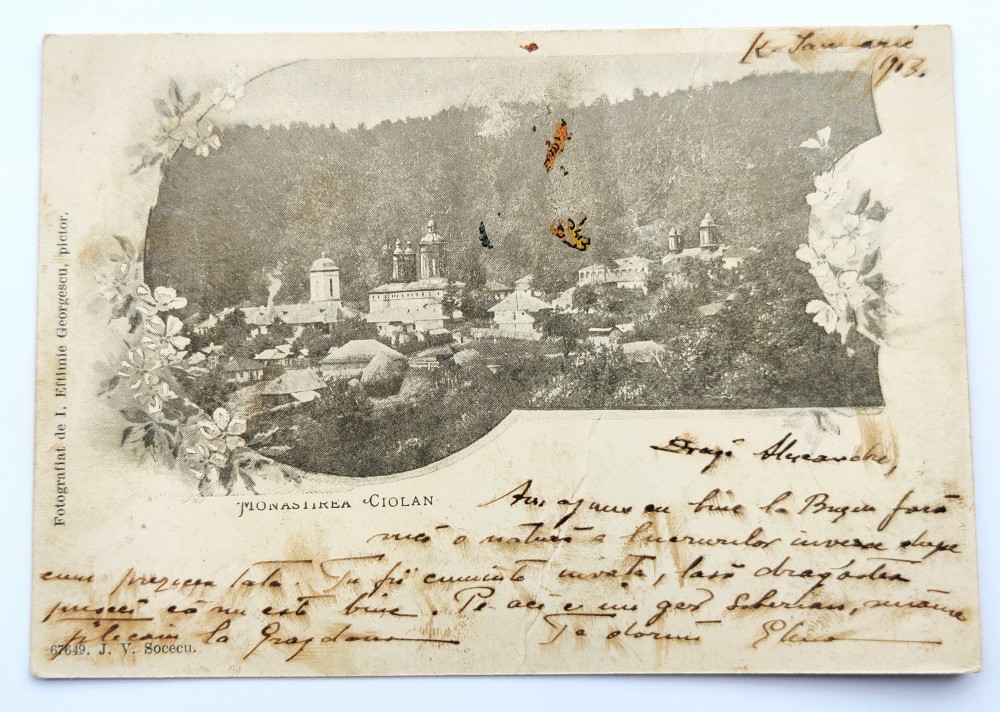 Ianuarie
903.
Fotografiat de I. Eftimie Georgescu, pictor.
MONASTIREA CIOLAN
Dragă Alexandre,
Am ajuns cu bine la Buzeu fără
nici o natură a lucrurilor inversă dupe
cum prezicea tata. Tu fii cuminte învață, lasă dragostea
că nu este bine. Pe aci e un ger Siberian, mâine
plecăm la
Te dorim Elena
67649. J. V. Socecu.